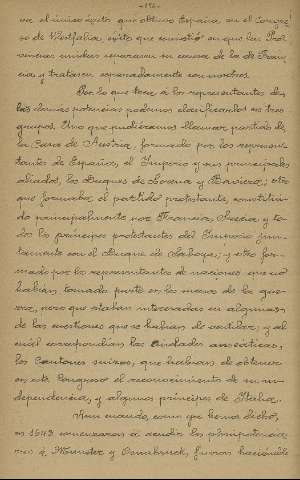 va el único éxito que obtuvo España en el Congre-
so de Westfalia, éxito que consistió en que las Pro-
vincias unidas separaron su causa de la de Fran-
cia y trataron separadamente con nosotros.
Por lo que toca á los representantes de
las demás potencias podemos clasificarlos en tres
grupos. Uno que pudiéramos llamar partido de
la Casa de Austria, formado por los represen-
tantes de España, el Imperio y sus principales
aliados, los Duques de Lorena y Baviera; otro
que formaba el partido protestante, constitui-
do principalmente por Francia, Suecia y to-
dos los príncipes protestantes del Imperio jun-
tamente con el Duque de Saboya; y otro for-
mado por los representantes de naciones que no
habían tomado parte en los sucesos de la gue-
rra, pero que estaban interesadas en algunas
de las cuestiones que se habían de ventilar; y al
cual correspondían las ciudades anseáticas,
los Cantones suizos, que habían de obtener
en este Congreso el reconocimiento de su in-
dependencia, y algunos príncipes de Italia.
Aun cuando, como ya hemos dicho,
en 1643 comenzaron á acudir los plenipotencia-
rios á Munster y Osnabruck, fueron haciéndolo